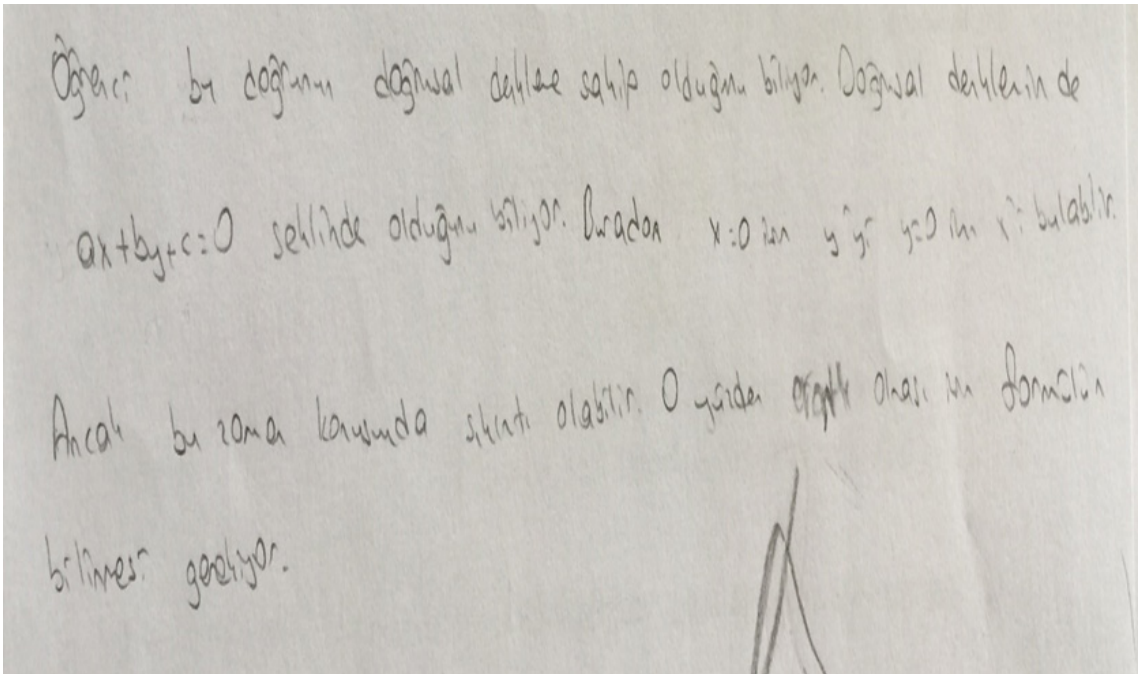 Öğrenci bu doğrunun doğrusal denkleme sahip olduğunu biliyor. Doğrusal denklemin de
ax+by+c=0 şeklinde olduğunu biliyor. Buradan x=0 için y'yi y=0 için x'i bulabilir.
Ancak bu zaman konusunda sıkıntı olabilir. O yüzden olması için formülün
bilinmesi gerekiyor.